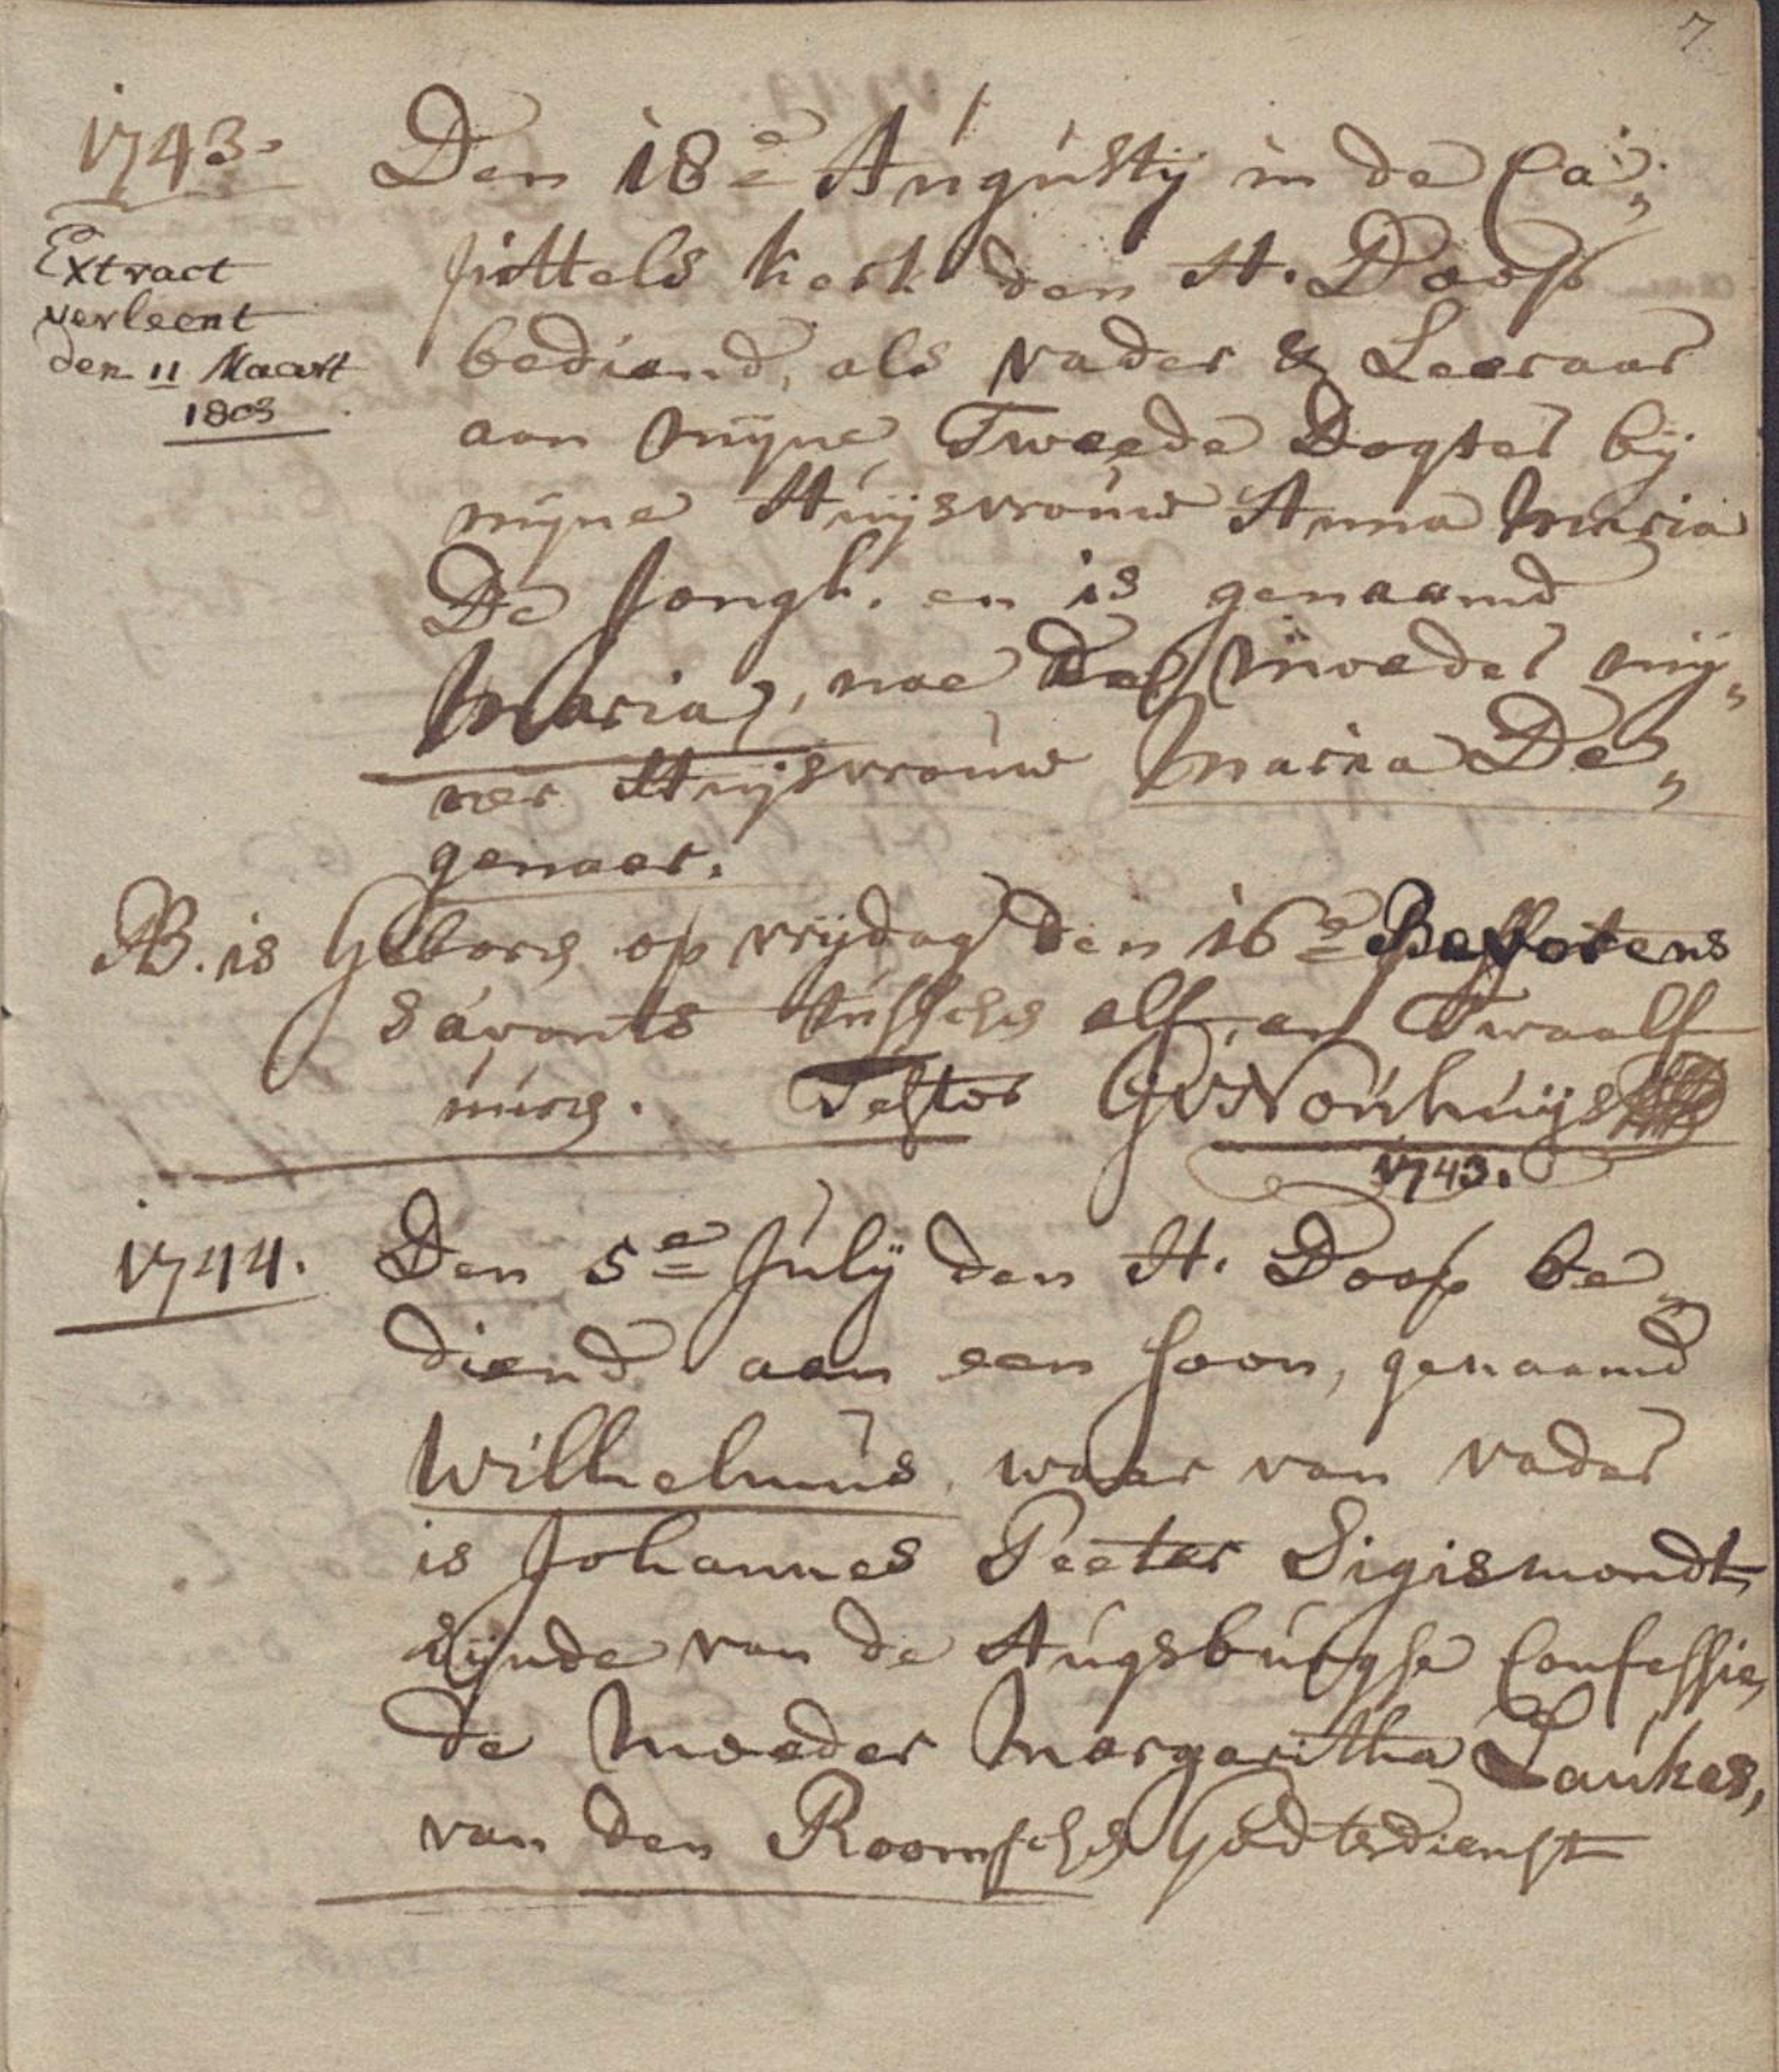 7
1743.
Den 18e Augustij in de Ca„
pittels kerk den H. Doop
bediend, als vader & Leeraar
aan mijne Tweede Dogter bij
mijne Huijsvrouw Anna Maria
De Jongh. en is genaamd
Maria, nae de moeder mij„
ner Huijsvrouw Maria De„
genaer.
Extract
verleent
den 11 Maart
1803
NB. is Geboren op vrijdag den 16e
savonts tusschen elf, en Twaalf
uuren. Testor G V Nouhuijs
1743.
1744.
Den 5e Julij den H. Doop be„
diend aan een soon, genaamd
Wilhelmus, waer van vader
is Johannes Peeter Sigismondt
zijnde van de Augsburgse Confessie,
de Moeder Margaritha Laukes,
van den Roomschen Godtsdienst